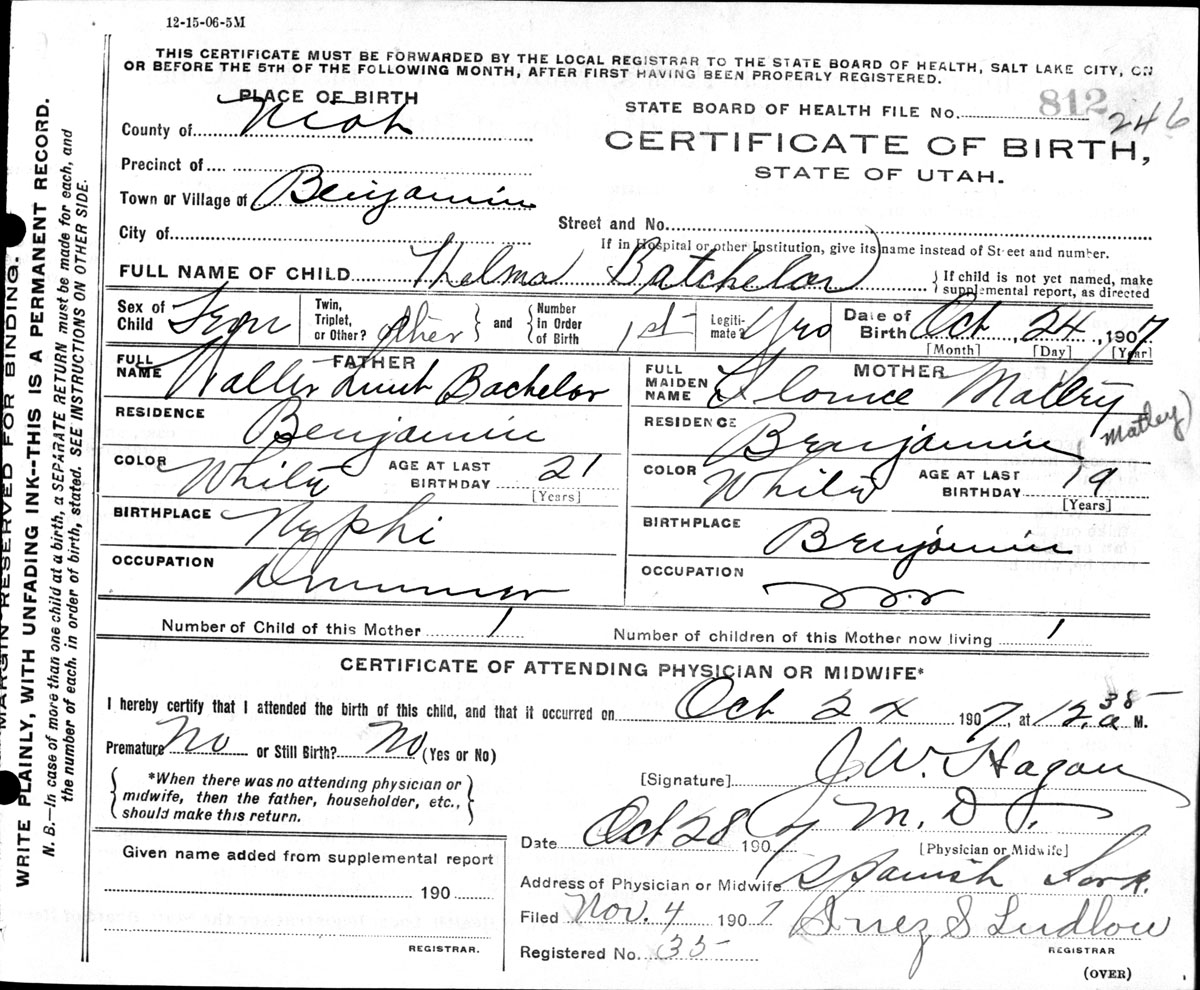 12-15-06-5M
THIS CERTIFICATE MUST BE FORWARDED BY THE LOCAL REGISTRAR TO THE STATE BOARD OF HEALTH, SALT LAKE CITY, ON
OR BEFORE THE 5TH OF THE FOLLOWING MONTH, AFTER FIRST HAVING BEEN PROPERLY REGISTERED.
MARGIN RESERVED FOR BINDING.
WRITE PLAINLY, WITH UNFADING INK--THIS IS A PERMANENT RECORD.
N. B.—In case of more than one child at a birth, a SEPARATE RETURN must be made for each, and
the number of each, in order of birth, stated. SEE INSTRUCTIONS ON OTHER SIDE.
PLACE OF BIRTH
County of Utah
Precinct of
Town or Village of Benjamin
City of
STATE BOARD OF HEALTH FILE No. 812 246
CERTIFICATE OF BIRTH,
STATE OF UTAH.
Street and No.
If in Hospital or other Institution, give its name instead of Street and number.
FULL NAME OF CHILD Thelma Batchelor
If child is not yet named, make
supplemental report, as directed
Sex of Child Twin, Triplet, or Other? other and Number In Order of Birth 1st Legiti- mate? Yes Date of Birth Oct 24, 1907
[Month] [Day] [Year]
FATHER
FULL NAME Walter Bachelor
RESIDENCE Benjamin
COLOR White AGE AT LAST BIRTHDAY 21
[Years]
BIRTHPLACE Nephi
OCCUPATION
MOTHER
FULL MAIDEN NAME Florence Matley
(Matley)
RESIDENCE Benjamin
COLOR White AGE AT LAST BIRTHDAY 19
[Years]
BIRTHPLACE Benjamin
OCCUPATION
Number of Child of this Mother 1 Number of children of this Mother now living 1
CERTIFICATE OF ATTENDING PHYSICIAN OR MIDWIFE*
I hereby certify that I attended the birth of this child, and that it occurred on Oct 24 1907, at 12.35 a M.
Premature No or Still Birth? No (Yes or No)
*When there was no attending physician or
midwife, then the father, householder, etc.,
should make this return.
[Signature] J. W. Hagan
M. D.
[Physician or Midwife]
Date Oct 28 1907
Address of Physician or Midwife Spanish Fork.
Filed Nov. 4 1907 Inez S Ludlow
REGISTRAR
Registered No. 35
(OVER)
Given name added from supplemental report
190
REGISTRAR.